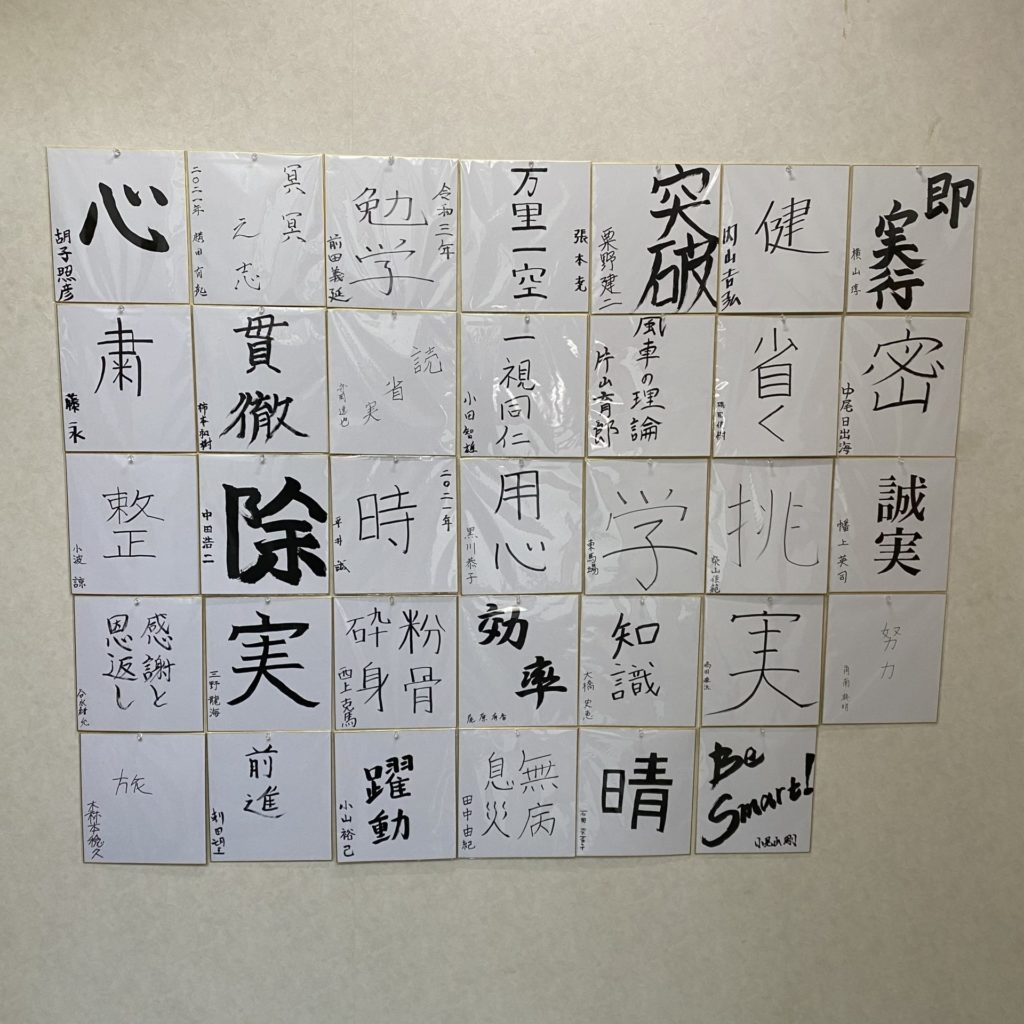 心
胡子照彦
二〇二一年
冥冥
之志
令和三年
勉学
前田義延
万里一空
張本光
突破
粟野建二
健
内山吉弘
即
実行
横山淳
粛
藤永
貫徹
柿本和樹
読
省
実
一視同仁
小田智雄
風車の理論
片山育郎
省く
密
中尾日出海
整
小波諒
除
中田浩二
二〇二一年
時
平井誠
用心
黒川恭子
学
東馬場
挑
柴山保範
誠実
幡上英司
感謝と
恩返し
実
三野龍海
粉骨
砕身
西上克馬
効
率
知識
大橋史恵
実
努力
旅
木森本稔久
前進
躍動
小山裕己
無病
息災
田中由紀
晴
Be
Smart!